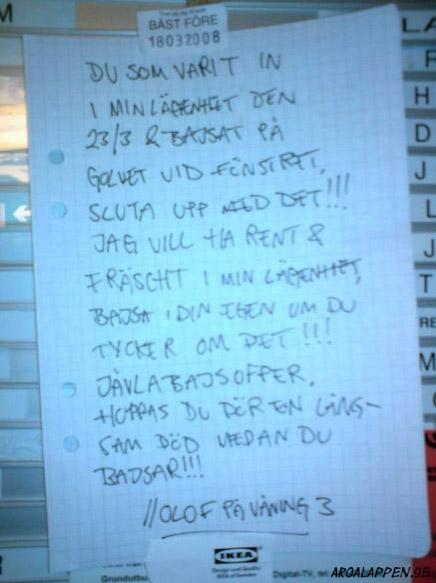 BÄST FÖRE
18032008
DU SOM VARIT IN
I MIN LÄGENHET DEN
23/3 & BAJSAT PÅ
GOLVET VID FÖNSTRET,
SLUTA UPP MED DET!!!
JAG VILL HA RENT &
FRÄSCHT I MIN LÄGENHET,
BAJSA I DIN EGEN OM DU
TYCKER OM DET!!!
JÄVLA BAJSOFFER,
HOPPAS DU DÖR EN LÅNG-
SAM DÖD MEDAN DU
BAJSAR!!!
//OLOF PÅ VÅNING 3
IKEA
Design and Quality
IKEA of Sweden
Digital-TV, tel
ARGALAPPEN.SE